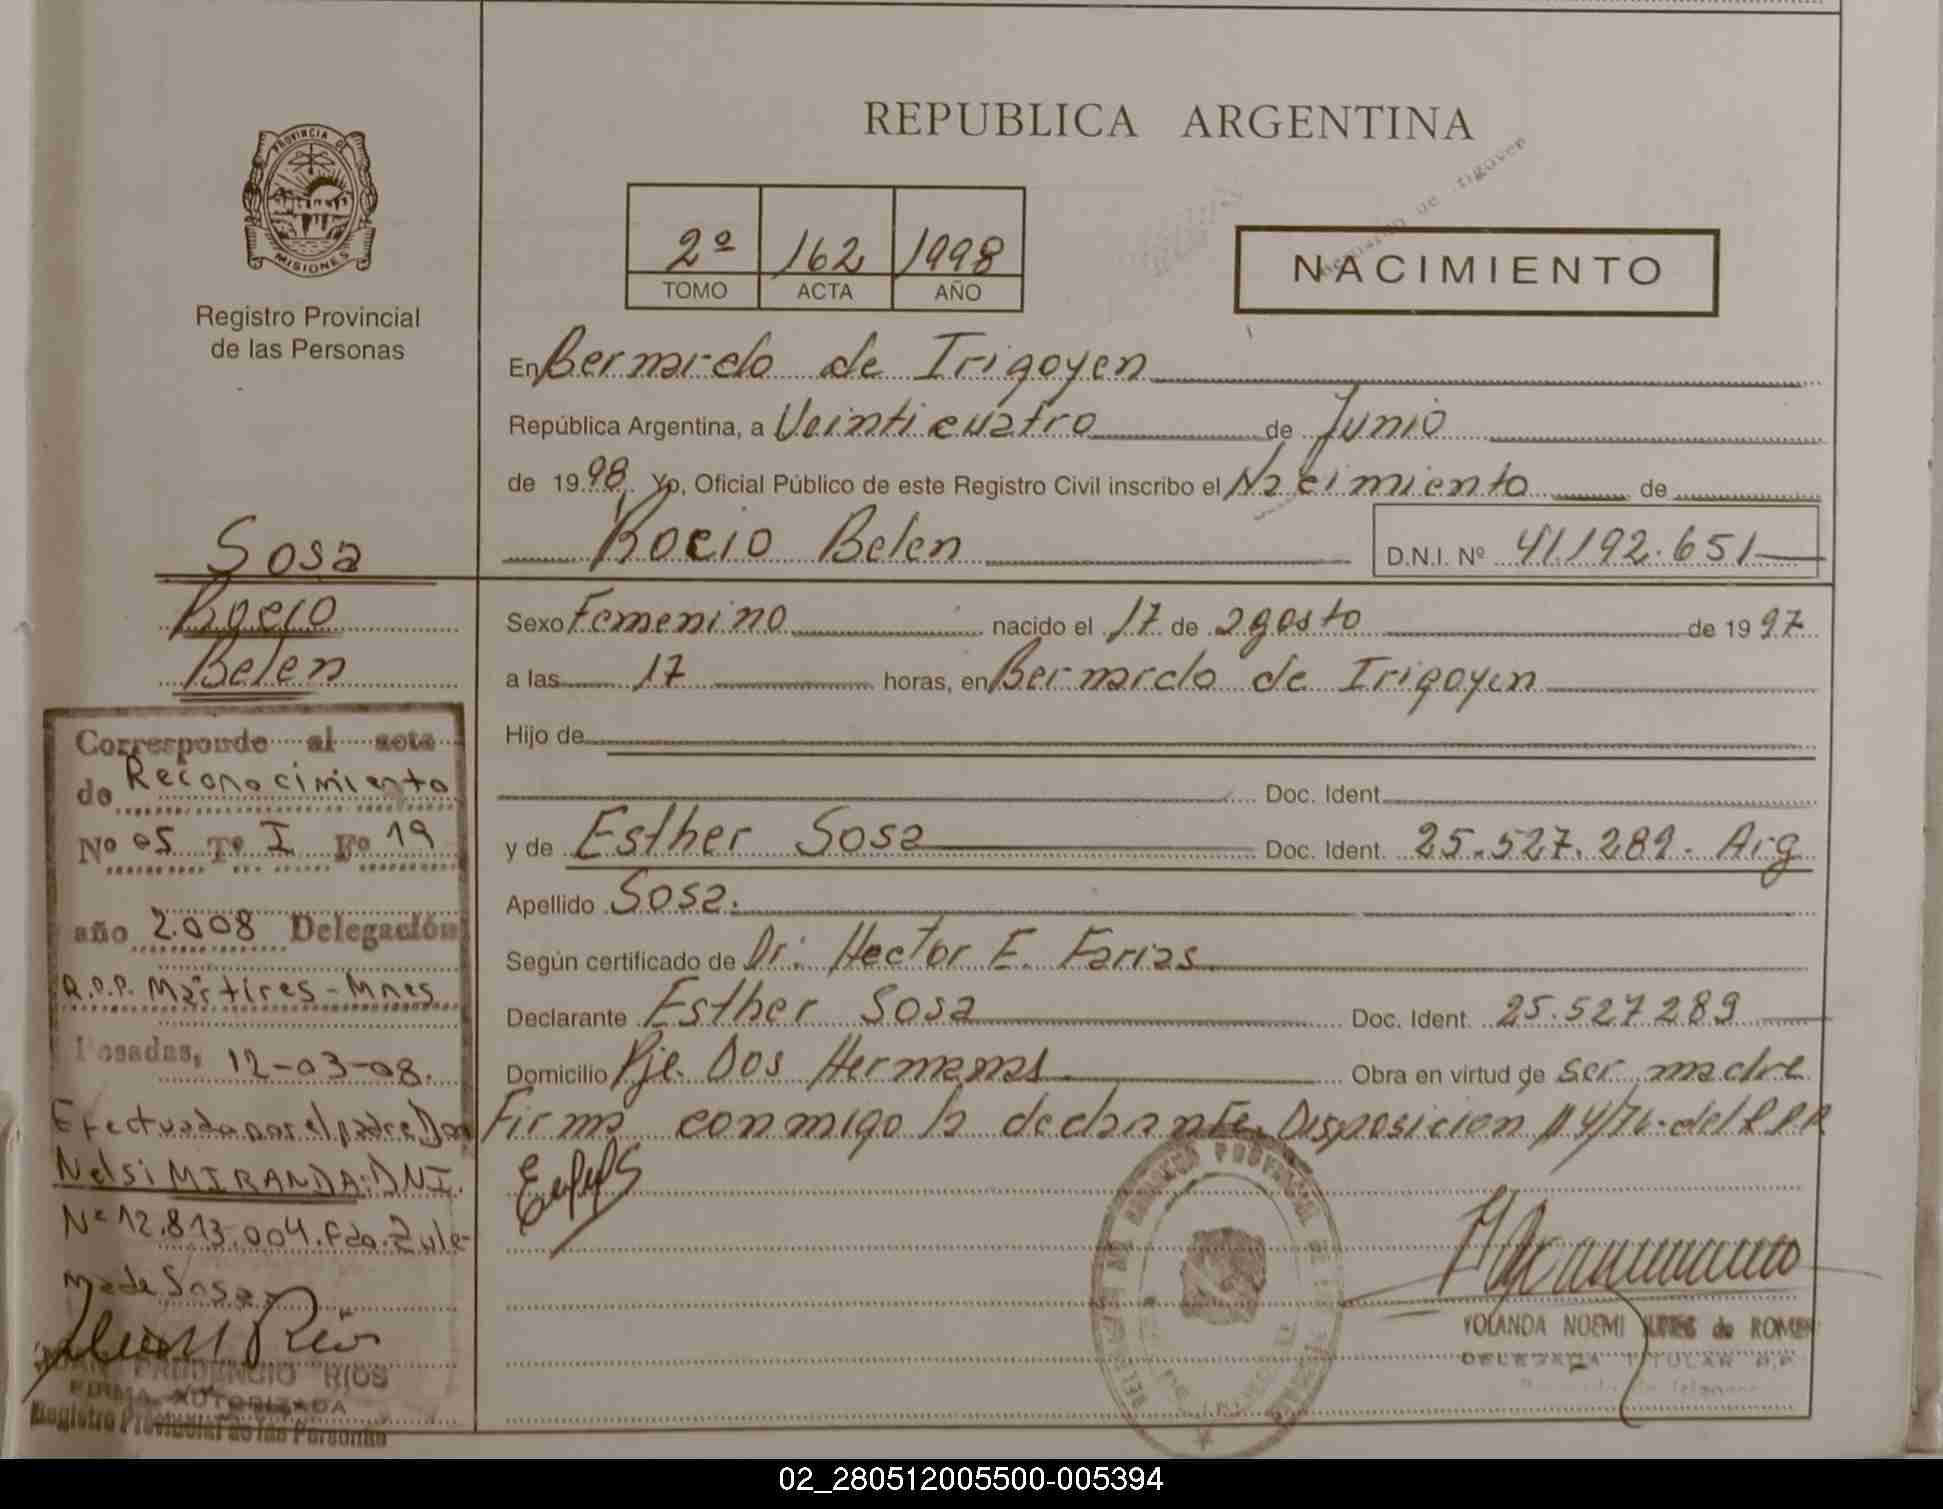 REPUBLICA ARGENTINA
PROVINCIA DE
MISIONES
Registro Provincial
de las Personas
2º 162 1998
TOMO ACTA AÑO
NACIMIENTO
En Bernardo de Irigoyen
República Argentina, a Veinticuatro de Junio
de 1998. Yo, Oficial Público de este Registro Civil inscribo el Nacimiento de
Rocio Belen D.N.I. Nº 41.192.651
Sexo Femenino nacido el 17 de agosto de 1997
a las 17 horas, en Bernardo de Irigoyen
Hijo de
Doc. Ident.
y de Esther Sosa Doc. Ident. 25.527.289. Arg
Apellido Sosa.
Según certificado de Dr. Hector E. Farias
Declarante Esther Sosa Doc. Ident. 25.527.289
Domicilio Pje. Dos Hermanas Obra en virtud de ser madre
Firma conmigo la declarante. Disposicion
YOLANDA NOEMI de
DELEGADA TITULAR
Sosa
Rocio
Belen
Corresponde al acta
de Reconocimiento
Nº 05 Tº I Fº 19
año 2.008 Delegación
R.P.P. Mártires - Mnes
Posadas, 12-03-08.
Efectuada por el padre Don
Nelsi MIRANDA. DNI.
Nº 12.813.004. Fdo. Zule-
ma de Sosa
PRUDENCIO RIOS
FIRMA AUTORIZADA
Registro Provincial de las Personas
02_280512005500-005394